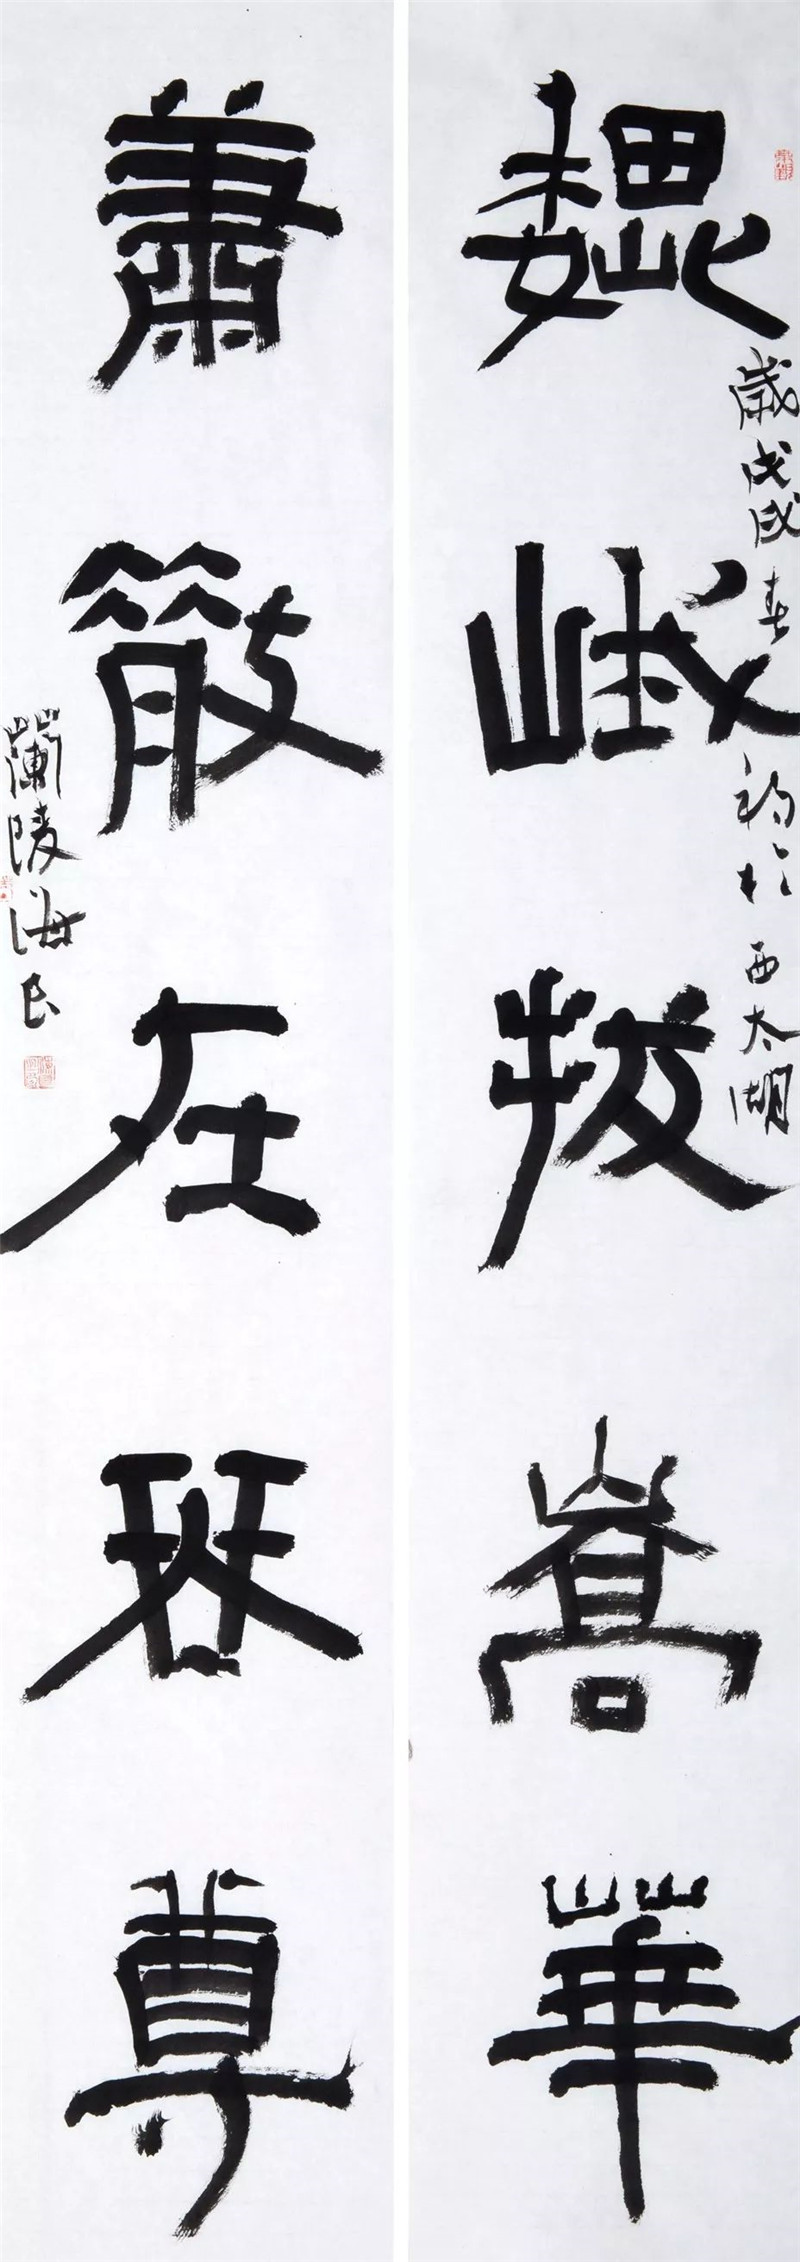 巍峨拔嵩華
歲戊戌春初於西太湖
蕭散在琴尊
蘭陵海民